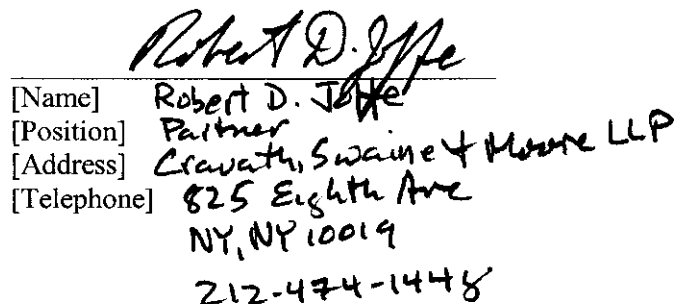 Robert D. Joffe
[Name] Robert D. Joffe
[Position] Partner
[Address] Cravath, Swaine & Moore LLP
[Telephone] 825 Eighth Ave
NY, NY 10019
212-474-1448